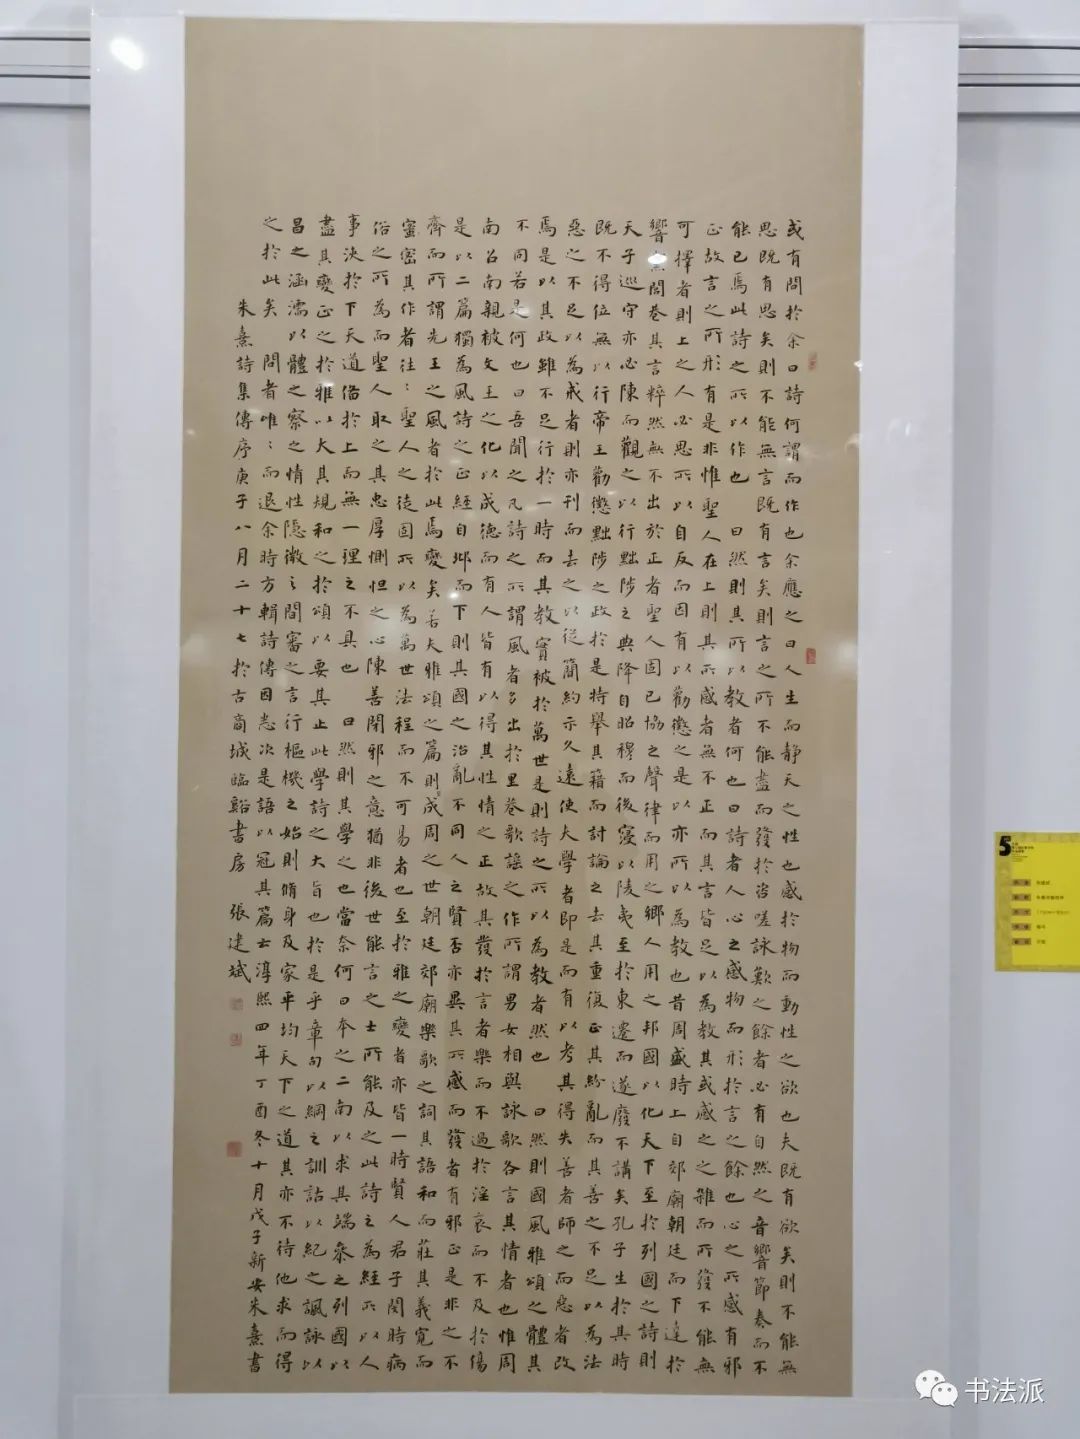 或有問於余曰詩何謂而作也余應之曰人生而靜天之性也感於物而動性之欲也夫既有欲矣則不能無
思既有思矣則不能無言既有言矣則言之所不能盡而發於咨嗟詠歎之餘者必有自然之音響節奏而不
能已焉此詩之所以作也 曰然則其所以教者何也曰詩者人心之感物而形於言之餘也心之所感有邪
正故言之所形有是非惟聖人在上則其所感者無不正而其言皆足以為教其或感之之雜而所發不能無
可擇者則上之人必思所以自反而因有以勸懲之是以亦所以為教也昔周盛時上自郊廟朝廷而下達於
響黨閭巷其言粹然無不出於正者聖人固已協之聲律而用之鄉人用之邦國以化天下至於列國之詩則
天子巡守亦必陳而觀之以行黜陟之典降自昭穆而後寖以陵夷至於東遷而遂廢不講矣孔子生於其時
既不得位無以行帝王勸懲黜陟之政於是特舉其籍而討論之去其重復正其紛亂而其善之不足以為法
惡之不足以為戒者則亦刊而去之以從簡約示久遠使夫學者即是而有以考其得失善者師之而惡者改
焉是以其政雖不足行於一時而其教實被於萬世是則詩之所以為教者然也 曰然則國風雅頌之體其
不同若是何也曰吾聞之凡詩之所謂風者多出於里巷歌謠之作所謂男女相與詠歌各言其情者也惟周
南召南親被文王之化以成德而有人皆有以得其性情之正故其發於言者樂而不過於淫哀而不及於傷
是以二篇獨為風詩之正經自邶而下則其國之治亂不同人之賢否亦異其所感而發者有邪正是非之不
齊而所謂先王之風者於此焉變矣若夫雅頌之篇則成周之世朝廷郊廟樂歌之詞其語和而莊其義寬而
密其作者往〻聖人之徒固所以為萬世法程而不可易者也至於雅之變者亦皆一時賢人君子閔時病
俗之所為而聖人取之其忠厚惻怛之心陳善閉邪之意猶非後世能言之士所能及之此詩之為經所以人
事浹於下天道備於上而無一理之不具也 曰然則其學之也當奈何曰本之二南以求其端參之列國以
盡其變正之於雅以大其規和之於頌以要其止此學詩之大旨也於是乎章句以綱之訓詁以紀之諷詠以
昌之涵濡以體之察之情性隱微之間審之言行樞機之始則脩身及家平均天下之道其亦不待他求而得
之於此矣 問者唯〻而退余時方輯詩傳因悉次是語以冠其篇云淳熙四年丁酉冬十月戊子新安朱熹書
朱熹詩集傳序庚子八月二十七於古商城臨谿書房 張建斌
5
书法派